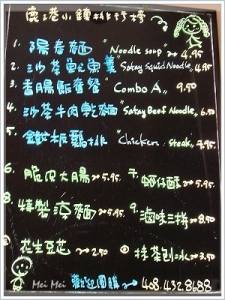 鹿港小鎮排行榜
1. 陽春麵 "Noodle soup" 4.95
2. 沙茶魷魚羹 "Satay Squid Noodle, 4.95
3. 香腸飯套餐 Combo A" 9.50
4. 沙茶牛肉乾麵 "Satay Beef Noodle, 6.50
5. 鐵板雞排 "Chicken, Steak, 9.95
6. 脆皮大腸 5.95 7. 蚵仔酥 5.95
8. 特製涼麵 5.95 9. 滷味三拼 8.50
花生豆花 2.50 抹茶刨冰 3.50
Mei Mei 歡迎團購 408.432.8688